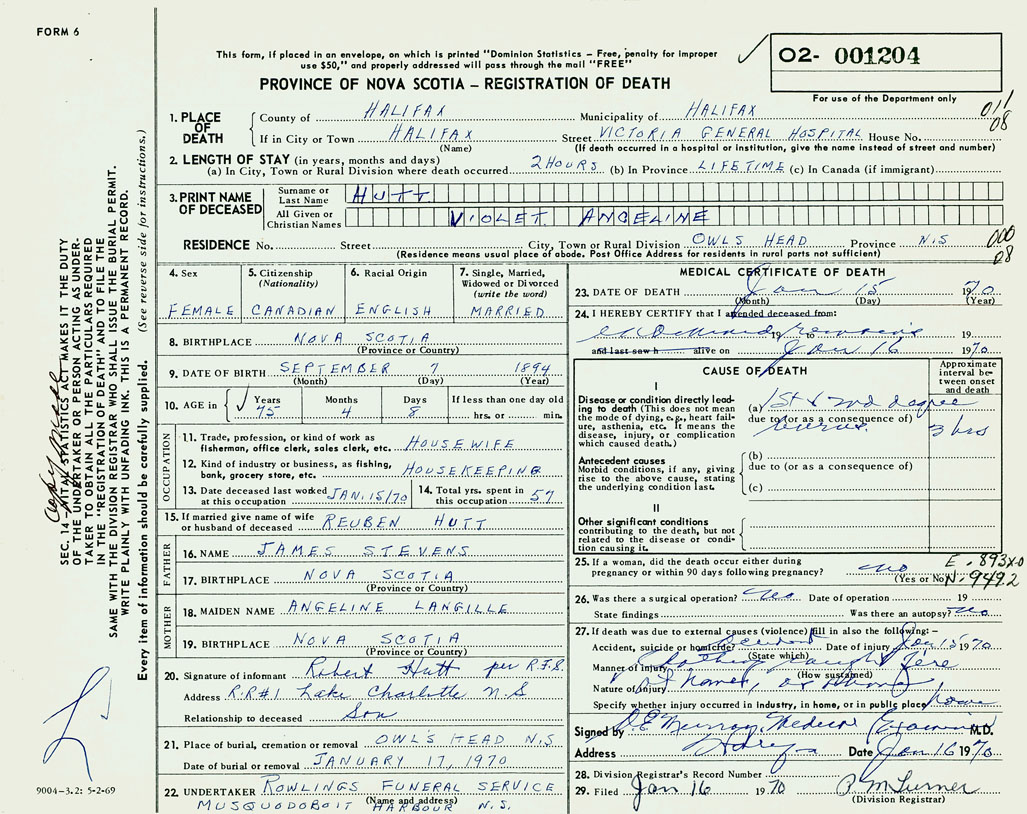 FORM 6
This form, if placed in an envelope, on which is printed "Dominion Statistics – Free, penalty for improper
use $50," and properly addressed will pass through the mail "FREE"
02- 001204
For use of the Department only
PROVINCE OF NOVA SCOTIA – REGISTRATION OF DEATH
011
08
1. PLACE OF DEATH
County of HALIFAX Municipality of HALIFAX
If in City or Town HALIFAX Street VICTORIA GENERAL HOSPITAL House No.
(Name) (If death occurred in a hospital or institution, give the name instead of street and number)
2. LENGTH OF STAY (in years, months and days)
(a) In City, Town or Rural Division where death occurred 2 HOURS (b) In Province LIFETIME (c) In Canada (if immigrant)
3. PRINT NAME OF DECEASED
Surname or Last Name HUTT
All Given or Christian Names VIOLET ANGELINE
RESIDENCE No. Street City, Town or Rural Division OWLS HEAD Province N.S
(Residence means usual place of abode. Post Office Address for residents in rural parts not sufficient)
000
08
4. Sex
FEMALE
5. Citizenship
(Nationality)
CANADIAN
6. Racial Origin
ENGLISH
7. Single, Married,
Widowed or Divorced
(write the word)
MARRIED
8. BIRTHPLACE NOVA SCOTIA
(Province or Country)
9. DATE OF BIRTH SEPTEMBER 7 1894
(Month) (Day) (Year)
10. AGE in Years 75 Months 4 Days 8 If less than one day old
hrs. or min.
OCCUPATION
11. Trade, profession, or kind of work as
fisherman, office clerk, sales clerk, etc. HOUSEWIFE
12. Kind of industry or business, as fishing,
bank, grocery store, etc. HOUSEKEEPING
13. Date deceased last worked
at this occupation JAN. 15/70
14. Total yrs. spent in
this occupation 57
15. If married give name of wife
or husband of deceased REUBEN HUTT
FATHER
16. NAME JAMES STEVENS
17. BIRTHPLACE NOVA SCOTIA
(Province or Country)
MOTHER
18. MAIDEN NAME ANGELINE LANGILLE
19. BIRTHPLACE NOVA SCOTIA
(Province or Country)
20. Signature of informant Robert Hutt per R.F.S.
Address R.R#1 Lake Charlotte N.S
Relationship to deceased Son
21. Place of burial, cremation or removal OWL'S HEAD N.S
Date of burial or removal JANUARY 17, 1970
22. UNDERTAKER ROWLINGS FUNERAL SERVICE
(Name and address)
MUSQUODOBOIT HARBOUR N.S.
MEDICAL CERTIFICATE OF DEATH
23. DATE OF DEATH Jan 15 1970
(Month) (Day) (Year)
24. I HEREBY CERTIFY that I attended deceased from:
19 19
and last saw h alive on Jan 16 1970
CAUSE OF DEATH
Approximate
interval be-
tween onset
and death
I
Disease or condition directly lead-
ing to death (This does not mean
the mode of dying, e.g., heart fail-
ure, asthenia, etc. It means the
disease, injury, or complication
which caused death.)
(a) 1st & 2nd degree
due to (or as a consequence of)
burns.
3 hrs
Antecedent causes
Morbid conditions, if any, giving
rise to the above cause, stating
the underlying condition last.
(b)
due to (or as a consequence of)
(c)
II
Other significant conditions
contributing to the death, but not
related to the disease or condi-
tion causing it.
25. If a woman, did the death occur either during
pregnancy or within 90 days following pregnancy? no
(Yes or No)
E. 893x0
N. 949.2
26. Was there a surgical operation? no Date of operation 19
State findings Was there an autopsy? no
27. If death was due to external causes (violence) fill in also the following: –
Accident, suicide or homicide? Accident Date of injury Jan 15 1970
(State which)
Manner of injury Clothing caught fire
(How sustained)
Nature of injury
Specify whether injury occurred in industry, in home, or in public place home
Signed by D.E Murray, Medical Examiner M.D.
Address Date Jan 16 1970
28. Division Registrar's Record Number
29. Filed Jan 16 1970 P. M Turner
(Division Registrar)
SEC. 14 – VITAL STATISTICS ACT MAKES IT THE DUTY
OF THE UNDERTAKER OR PERSON ACTING AS UNDER-
TAKER TO OBTAIN ALL THE PARTICULARS REQUIRED
IN THE "REGISTRATION OF DEATH" AND TO FILE THE
SAME WITH THE DIVISION REGISTRAR WHO SHALL ISSUE THE BURIAL PERMIT.
WRITE PLAINLY WITH UNFADING INK. THIS IS A PERMANENT RECORD.
Every item of information should be carefully supplied. (See reverse side for instructions.)
9004-3.2: 5-2-69